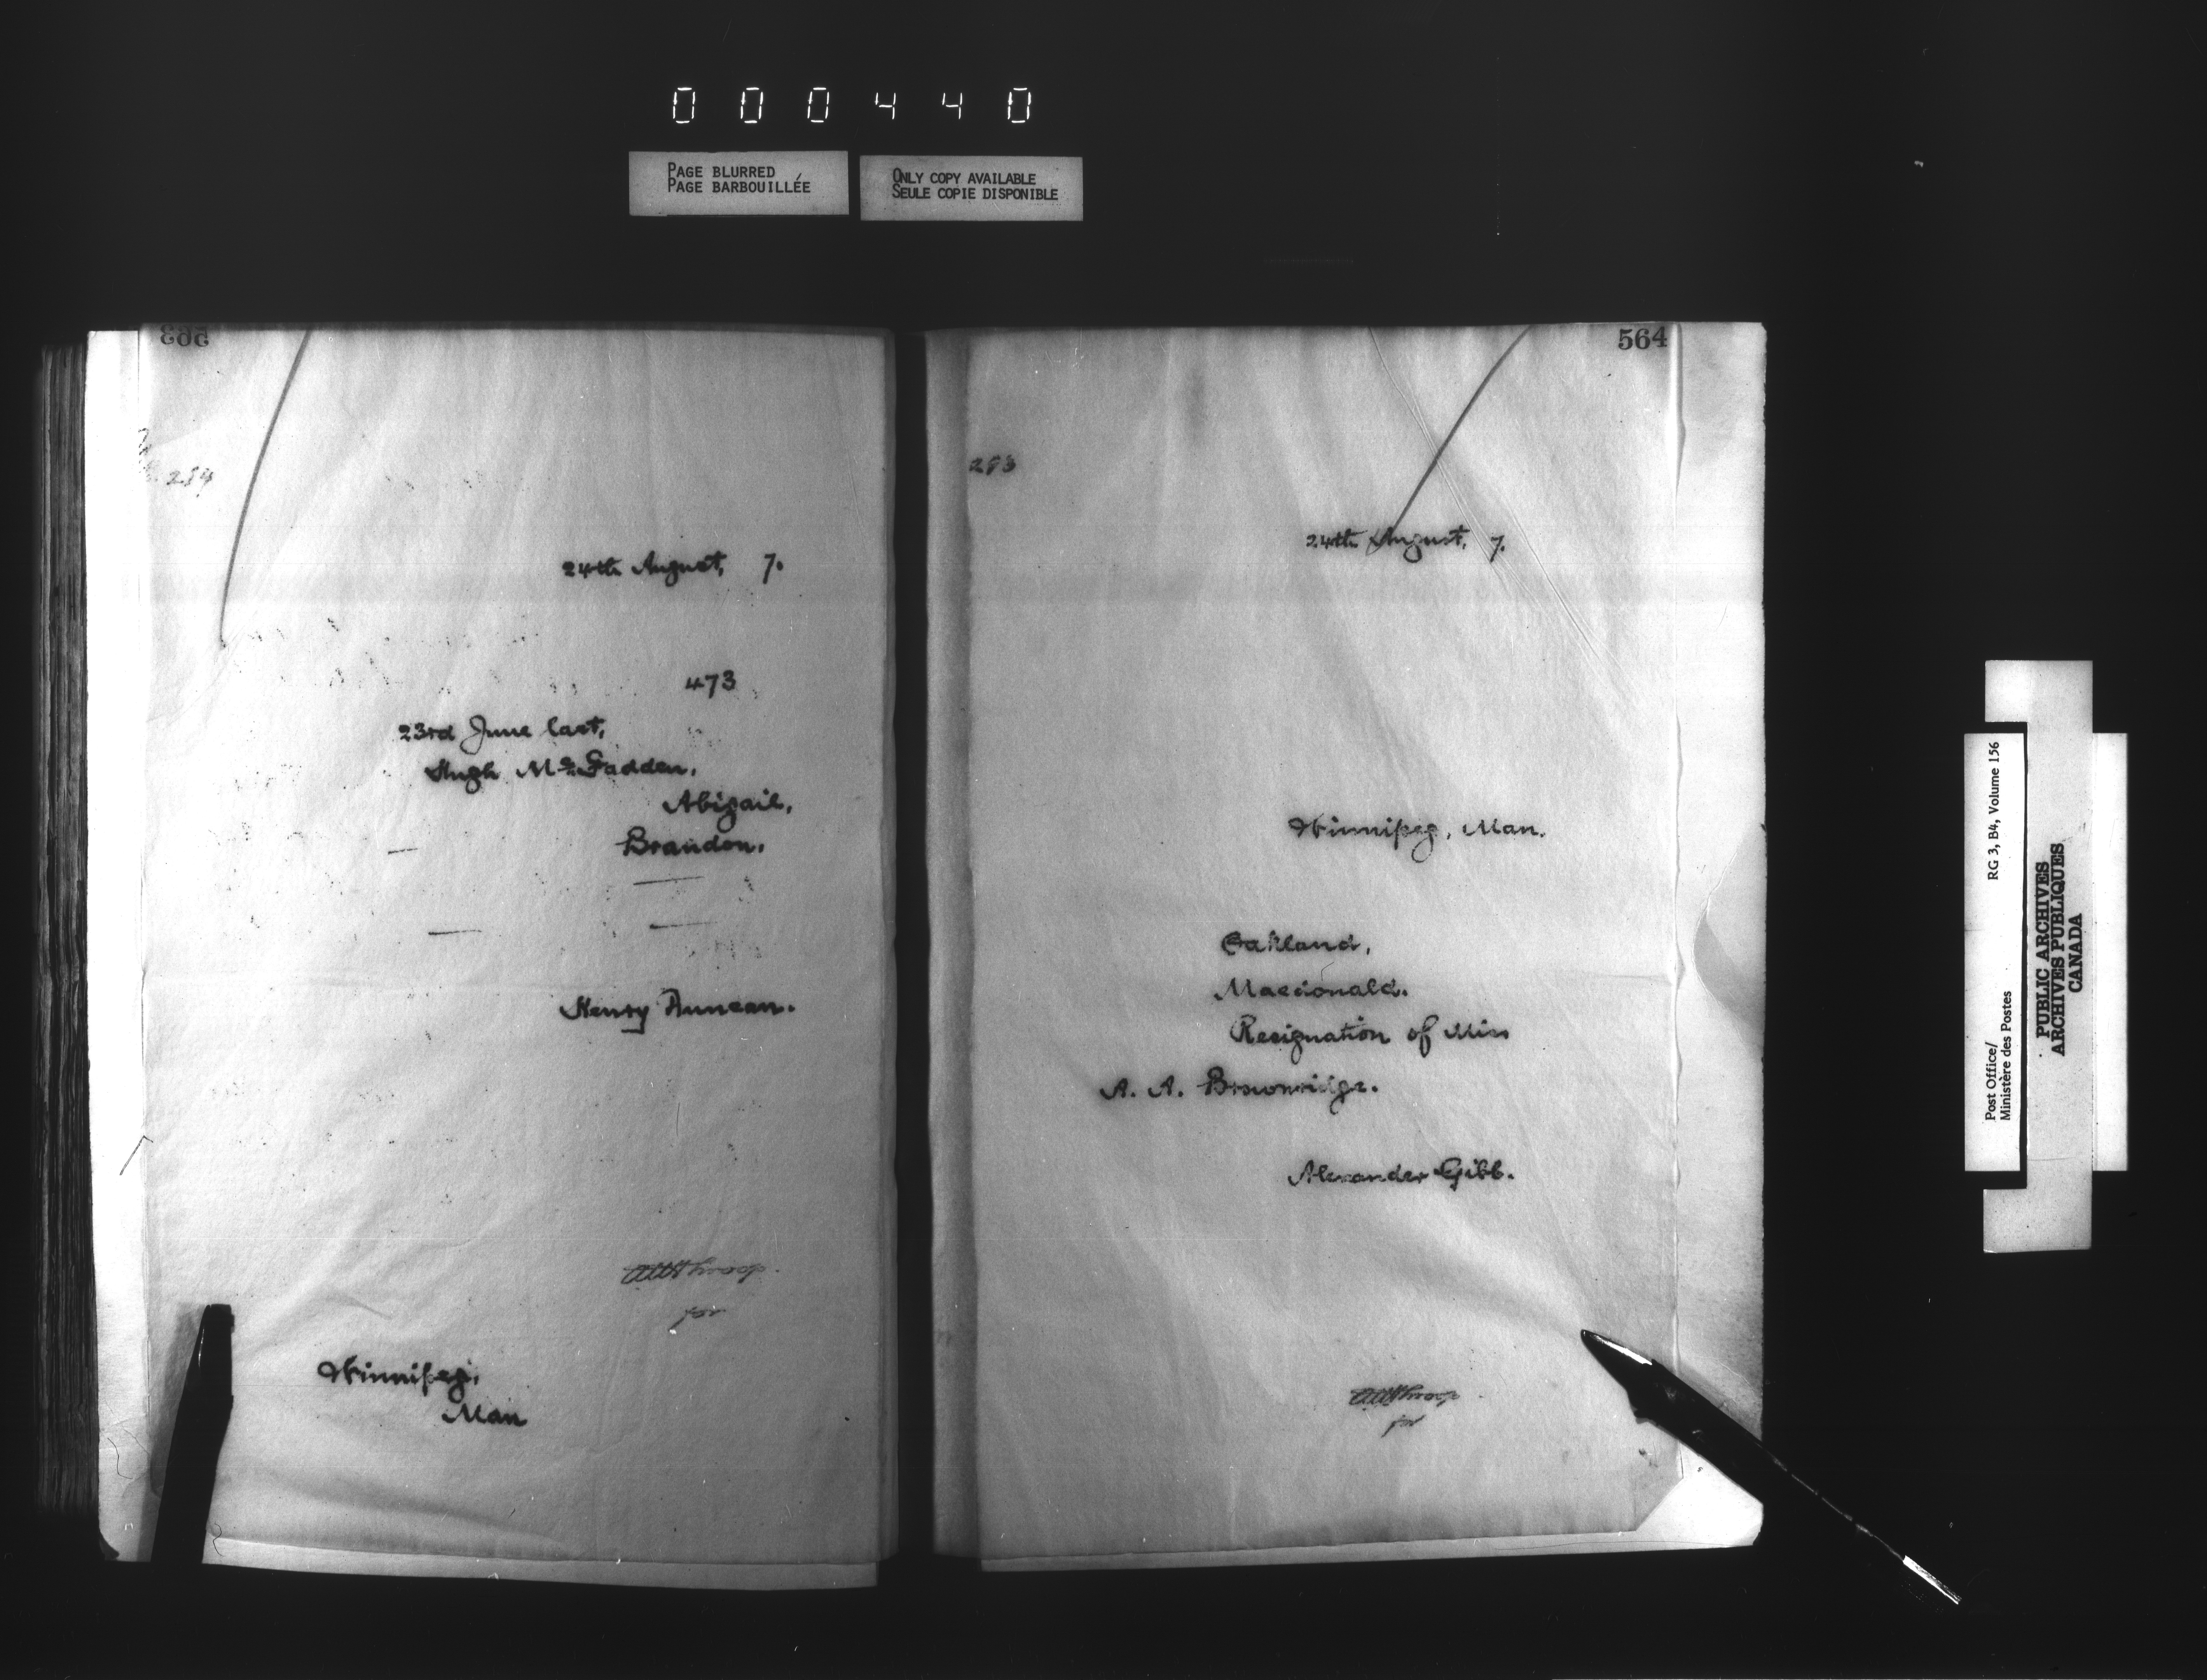 000440
PAGE BLURRED
PAGE BARBOUILLÉE
ONLY COPY AVAILABLE
SEULE COPIE DISPONIBLE
563
284
24th August, 7.
473
23rd June last,
Hugh McFadden,
Abigail,
Brandon.
Henry Duncan.
for
Winnipeg,
Man
564
283
24th August, 7.
Winnipeg, Man.
Oakland,
Macdonald.
Resignation of Miss
A. A. Brownridge.
Alexander Gibb.
for
Post Office/
Ministère des Postes
RG 3, B4, Volume 156
PUBLIC ARCHIVES
ARCHIVES PUBLIQUES
CANADA